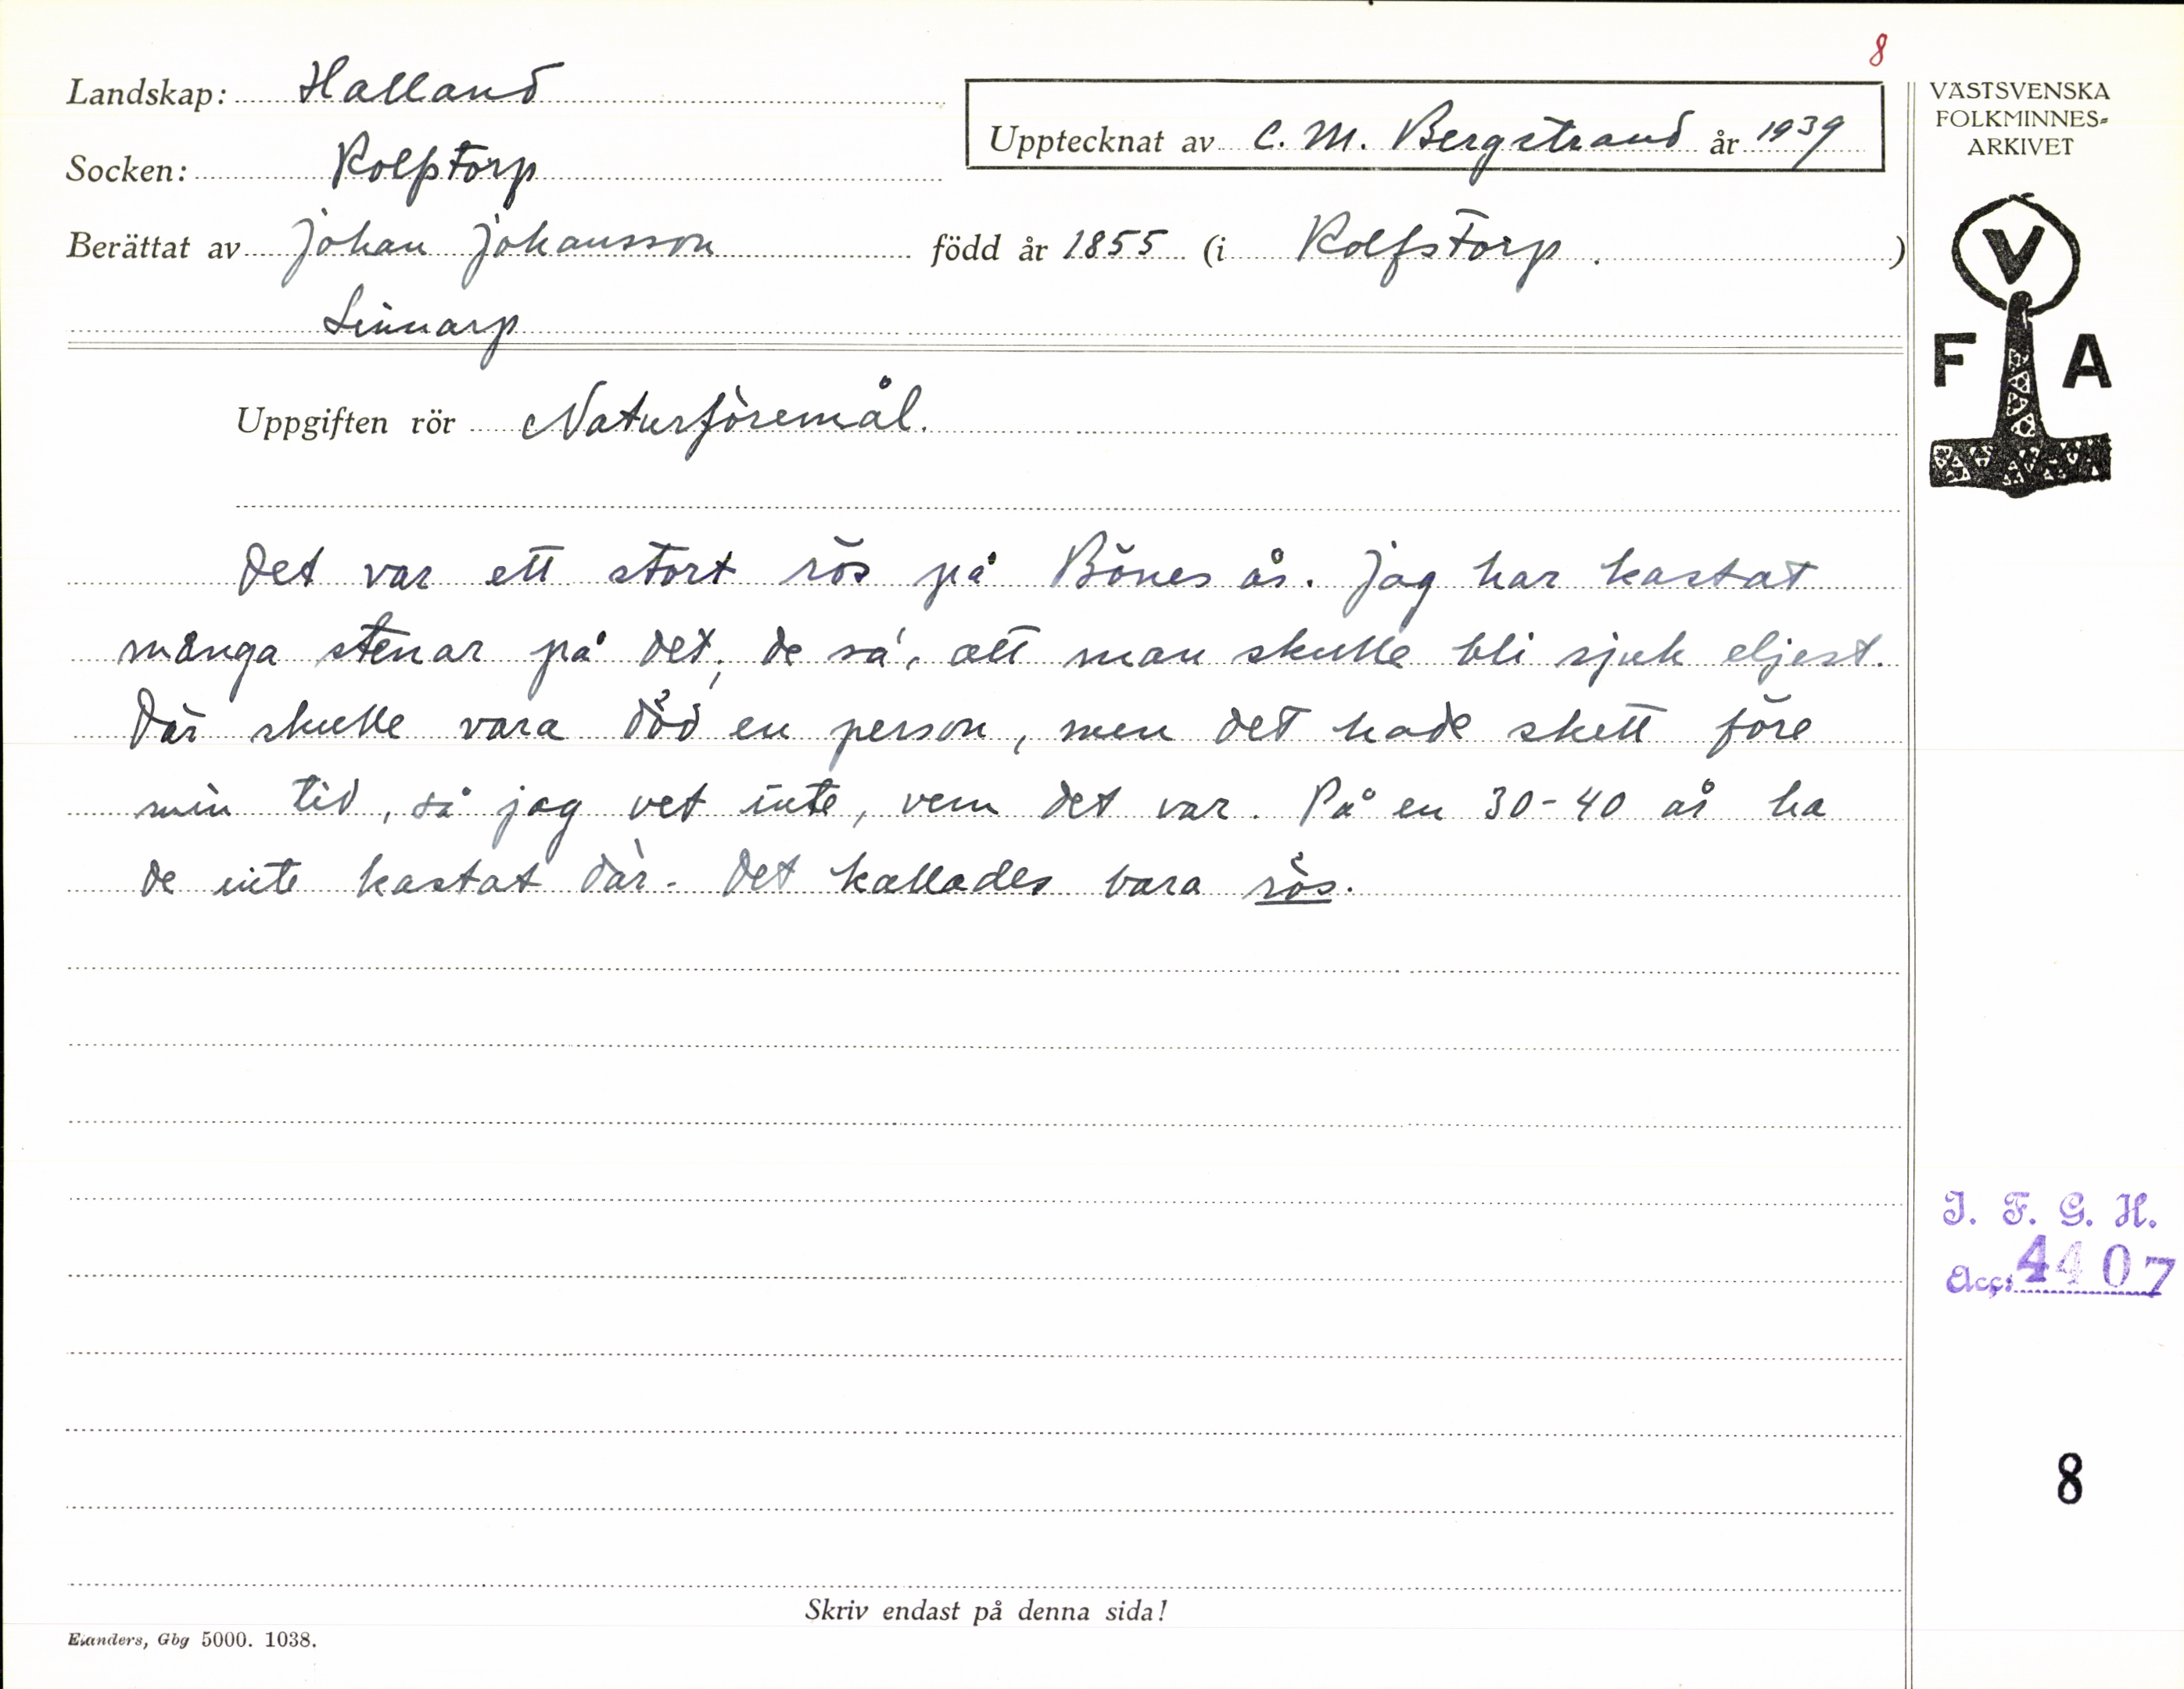 8
Landskap: Halland
Upptecknat av C. M. Bergstrand år 1939
Socken: Rolfstorp
Berättat av Johan Johansson född år 1855 (i Rolfstorp. )
Linnarp
Uppgiften rör Naturföremål.
Det var ett stort rös på Bönes ås. Jag har kastat
många stenar på det; de sa', att man skulle bli sjuk eljest.
Där skulle vara död en person, men det hade skett före
min tid, så jag vet inte, vem det var. På en 30-40 år ha
de inte kastat där. Det kallades bara rös.
Skriv endast på denna sida!
Elanders, Gbg 5000. 1038.
VÄSTSVENSKA
FOLKMINNES-
ARKIVET
V
F A
I. F. G. H.
Acc: 4407
8